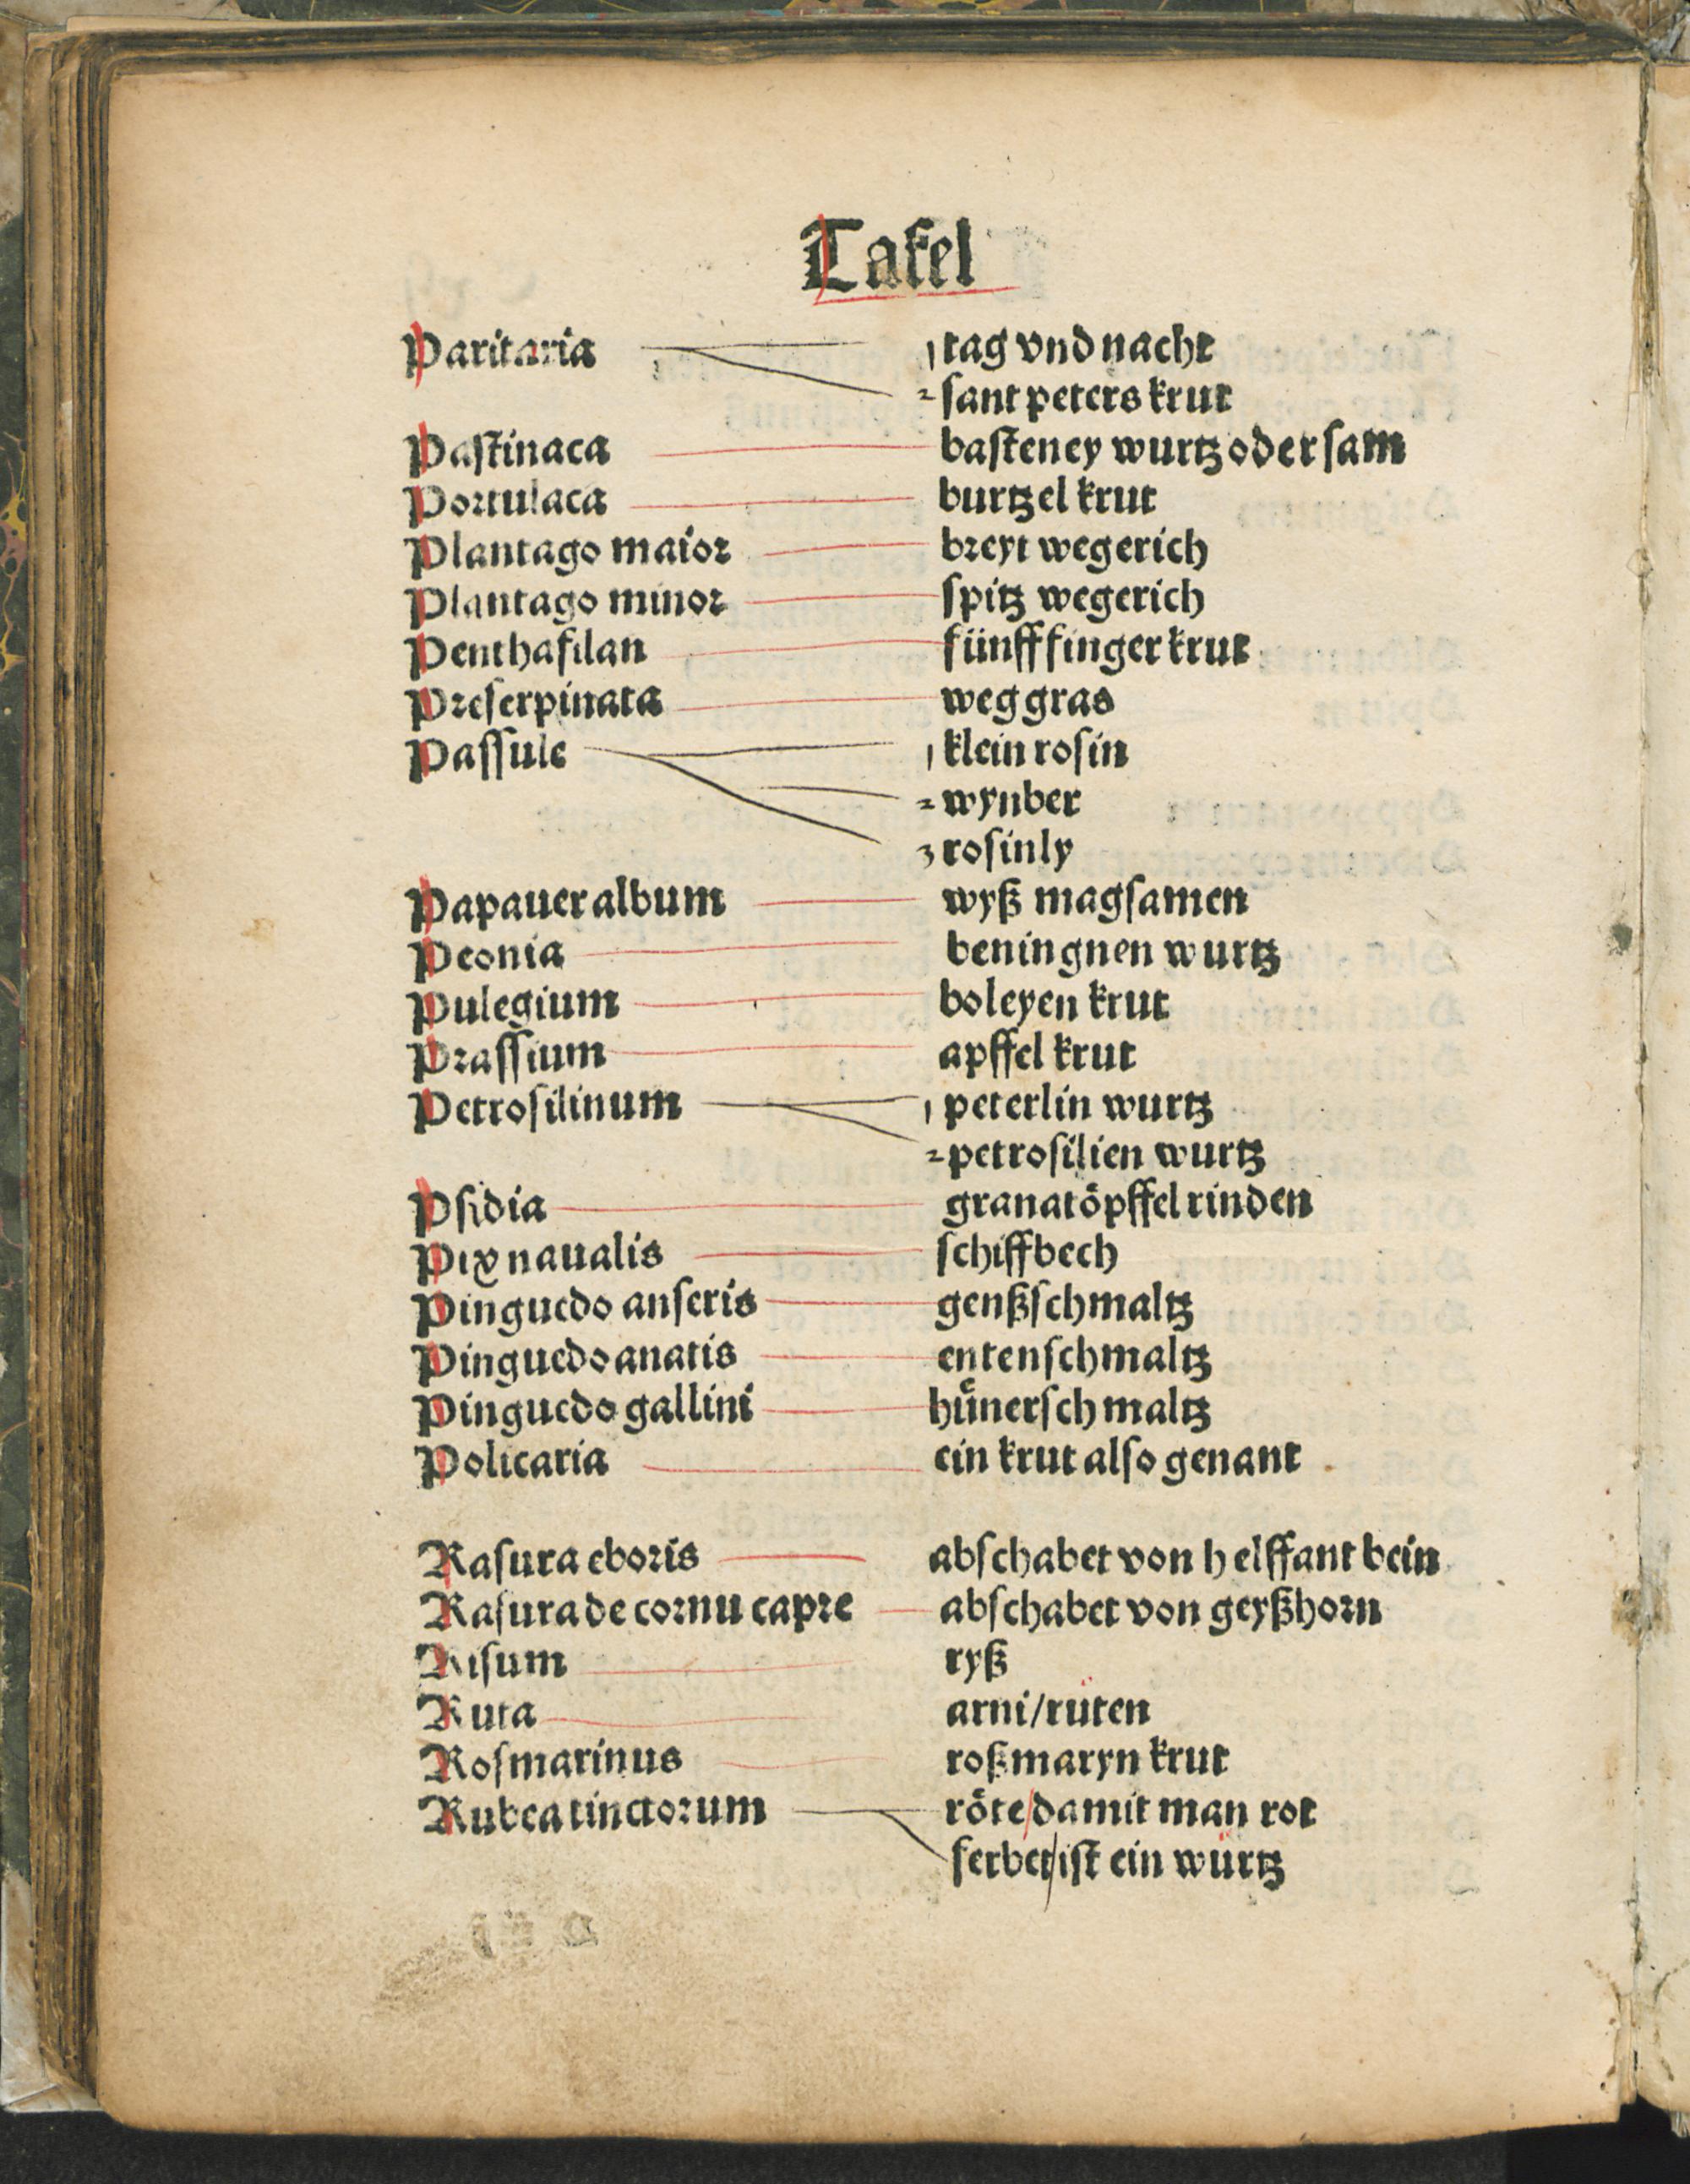 Tafel
Paritaria 1 tag vnd nacht
2 sant peters krut
Pastinaca basteney wurtz oder sam
Portulaca burtzel krut
Plantago maior breyt wegerich
Plantago minor spitz wegerich
Penthafilan fünff finger krut
Preserpinata weg gras
Passule 1 klein rosin
2 wynber
3 rosinly
Papauer album wyß magsamen
Peonia beningnen wurtz
Pulegium boleyen krut
Prassium apffel krut
Petrosilinum 1 peterlin wurtz
2 petrosilien wurtz
Psidia granatöpffel rinden
Pix naualis schiffbech
Pinguedo anseris genßschmaltz
Pinguedo anatis entenschmaltz
Pinguedo gallini hünerschmaltz
Policaria ein krut also genant
Rasura eboris abschabet von helffant bein
Rasura de cornu capre abschabet von geyßhorn
Risum ryß
Ruta arni/rüten
Rosmarinus roßmaryn krut
Rubea tinctorum röte/damit man rot
ferbet/ist ein würtz